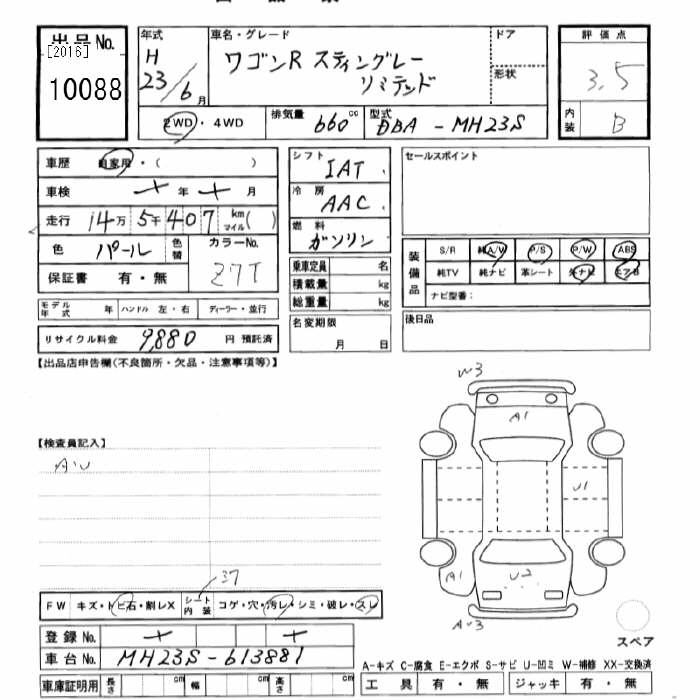 出品No.
[2016]
10088
年式
H
23/6月
車名・グレード
ワゴンR スティングレー
リミテッド
ドア
形状
評価点
3.5
内装
B
2WD・4WD
排気量 660 cc
型式 DBA-MH23S
車歴 自家用・( )
車検 年 月
走行 14万5千407 km マイル( )
色 パール 色替
カラーNo.
Z7T
保証書 有・無
シフト IAT
冷房 AAC
燃料 ガソリン
乗車定員 名
積載量 kg
総重量 kg
セールスポイント
装備品
S/R 純A/W P/S P/W ABS
純TV 純ナビ 革シート エアB
ナビ型番:
モデル年式 年 ハンドル 左・右 ディーラー・並行
名変期限
月 日
後日品
リサイクル料金 9,880 円 預託済
【出品店申告欄(不良箇所・欠品・注意事項等)】
W3
A1
U1
A1
U2
【検査員記入】
37
FW キズ・トビ石・割レX
シート内装 コゲ・穴・汚レ・シミ・破レ・スレ
登録No.
車台No. MH23S-613881
スペア
A-キズ C-腐食 E-エクボ S-サビ U-凹ミ W-補修 XX-交換済
車庫証明用 長さ cm 幅 cm 高さ cm
工具 有・無 ジャッキ 有・無